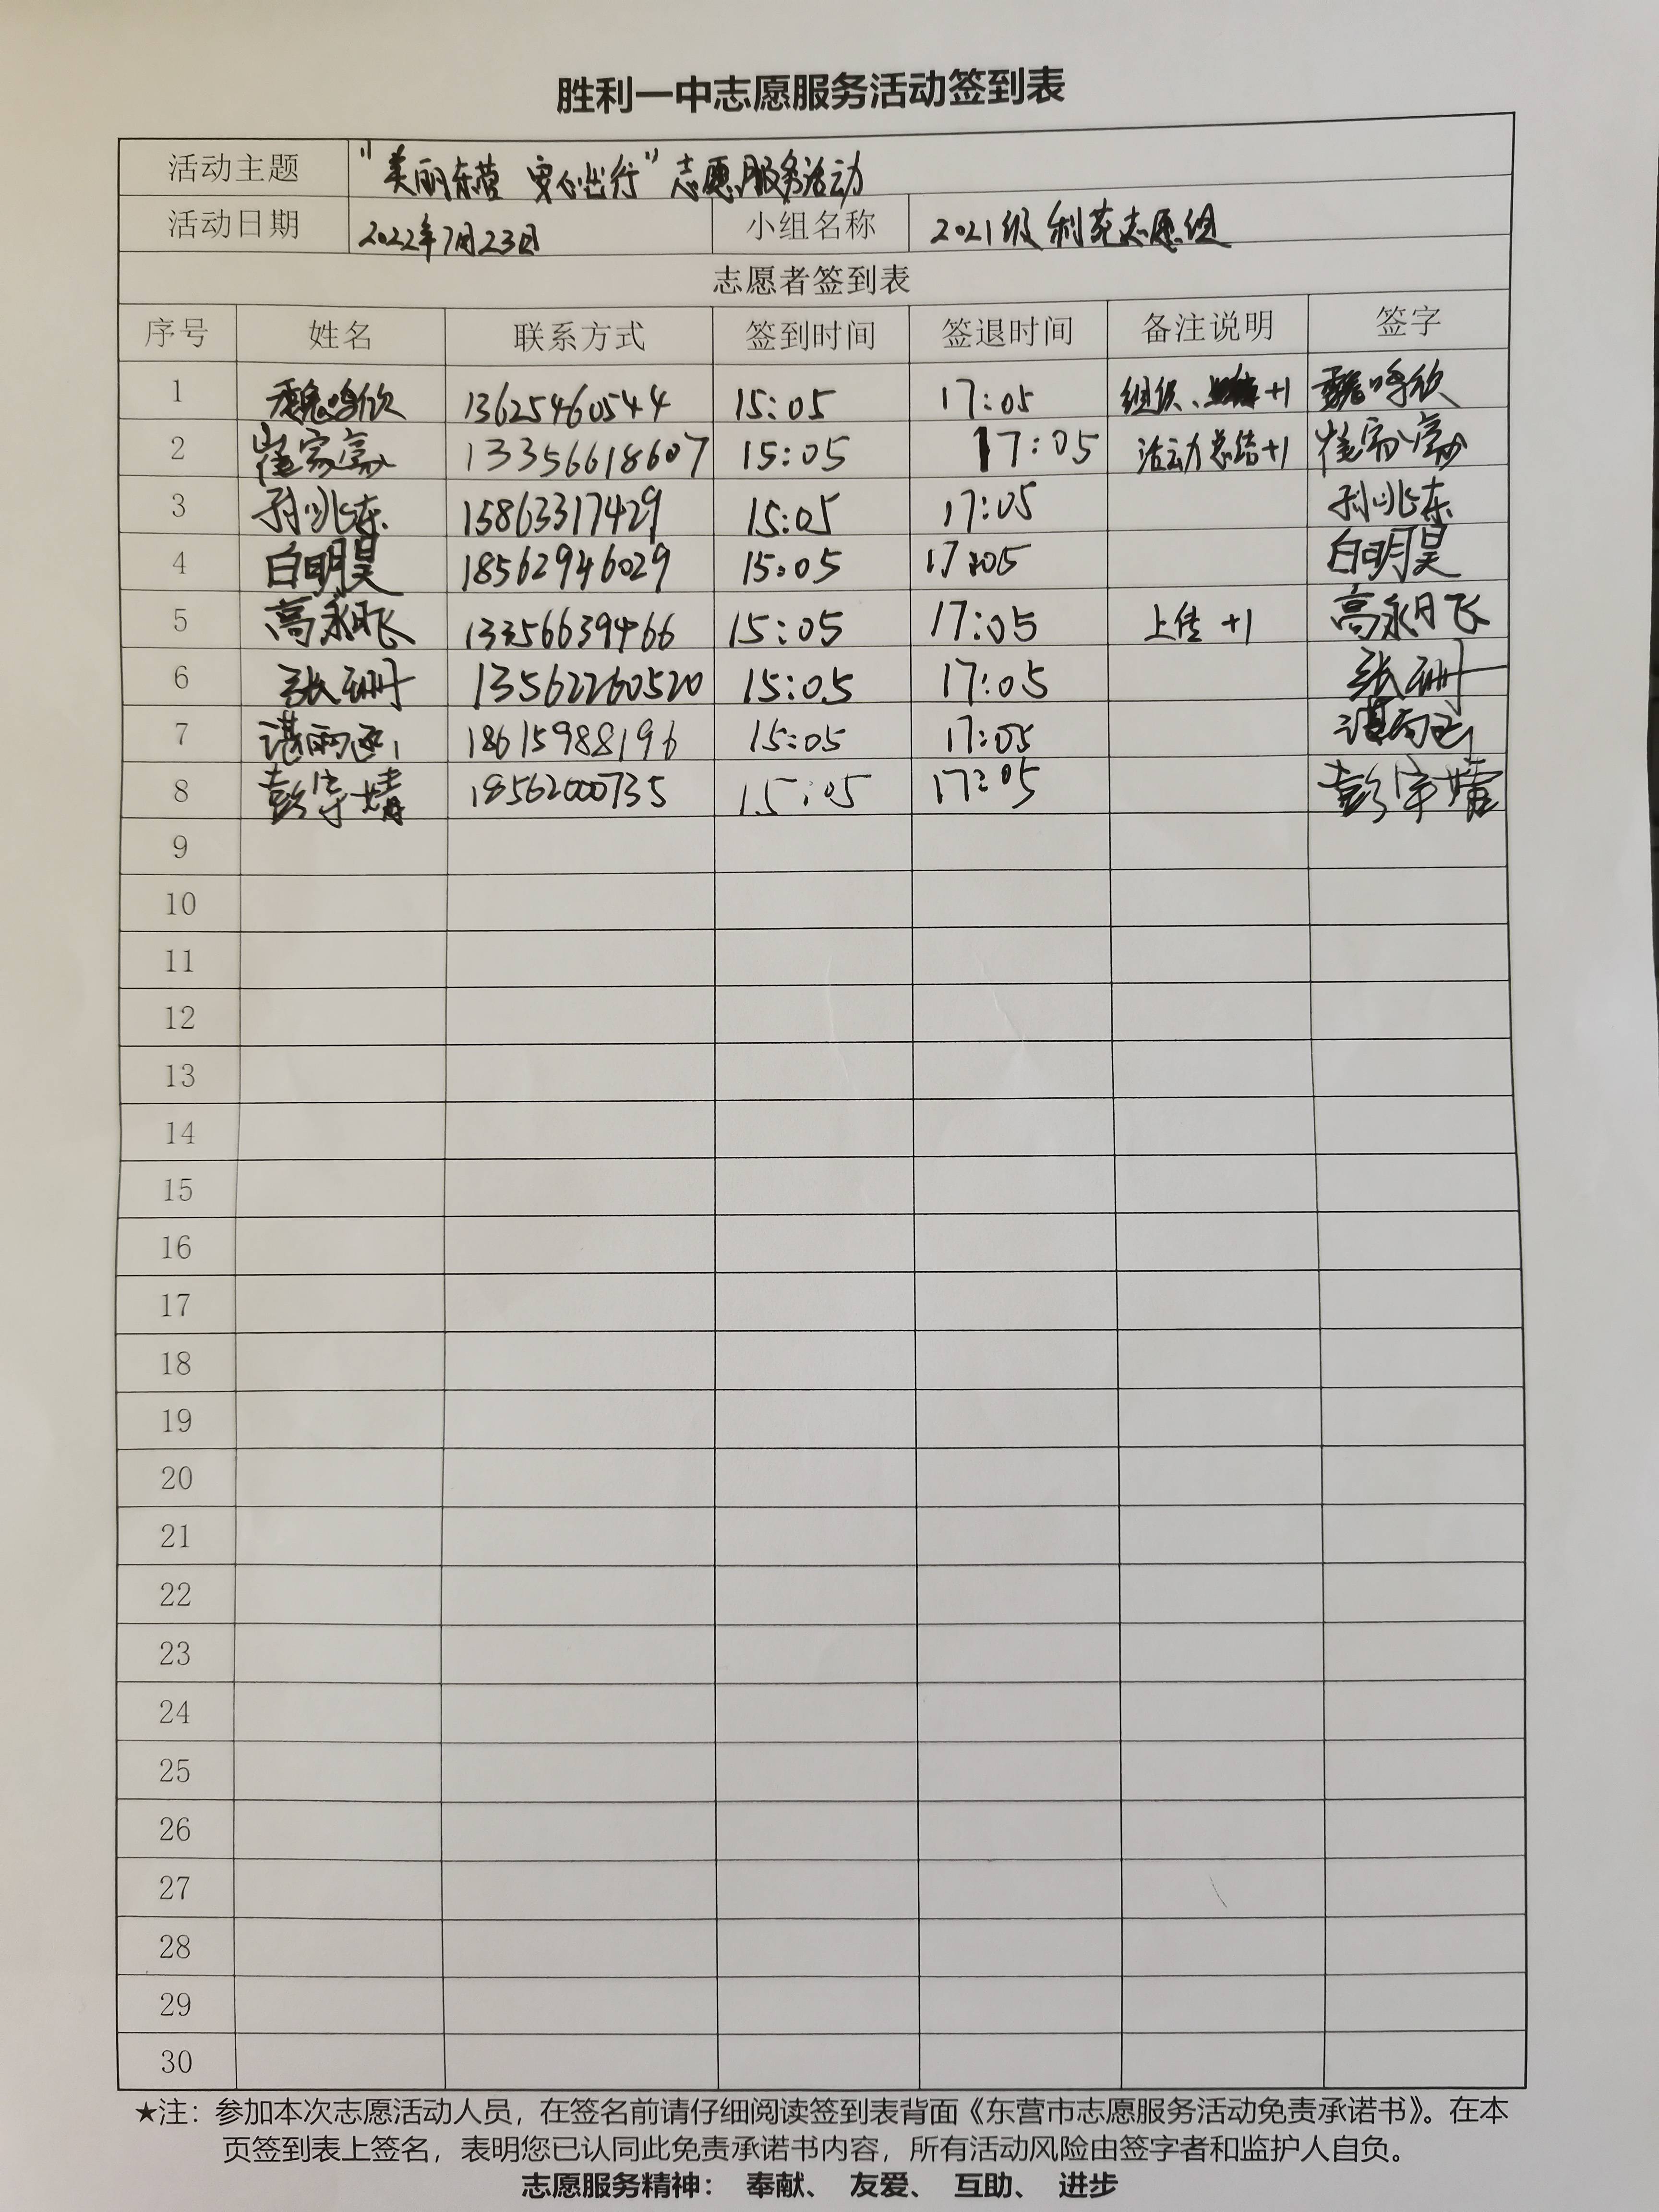 胜利一中志愿服务活动签到表
活动主题 “美丽东营 安心出行”志愿服务活动
活动日期 2022年7月23日 小组名称 2021级利苑志愿组
志愿者签到表
序号 姓名 联系方式 签到时间 签退时间 备注说明 签字
1 13625460544 15:05 17:05 组织、 +1
2 13356618607 15:05 17:05 活动总结+1
3 孙兆东 15863317429 15:05 17:05 孙兆东
4 白明昊 18562946029 15:05 17:05 白明昊
5 高永飞 13356639466 15:05 17:05 上传 +1
6 张珊 13562260520 15:05 17:05 张珊
7 谌雨函 18615988196 15:05 17:05 谌雨函
8 彭宇婧 18562000735 15:05 17:05 彭宇婧
9
10
11
12
13
14
15
16
17
18
19
20
21
22
23
24
25
26
27
28
29
30
★注：参加本次志愿活动人员，在签名前请仔细阅读签到表背面《东营市志愿服务活动免责承诺书》。在本
页签到表上签名，表明您已认同此免责承诺书内容，所有活动风险由签字者和监护人自负。
志愿服务精神： 奉献、 友爱、 互助、 进步